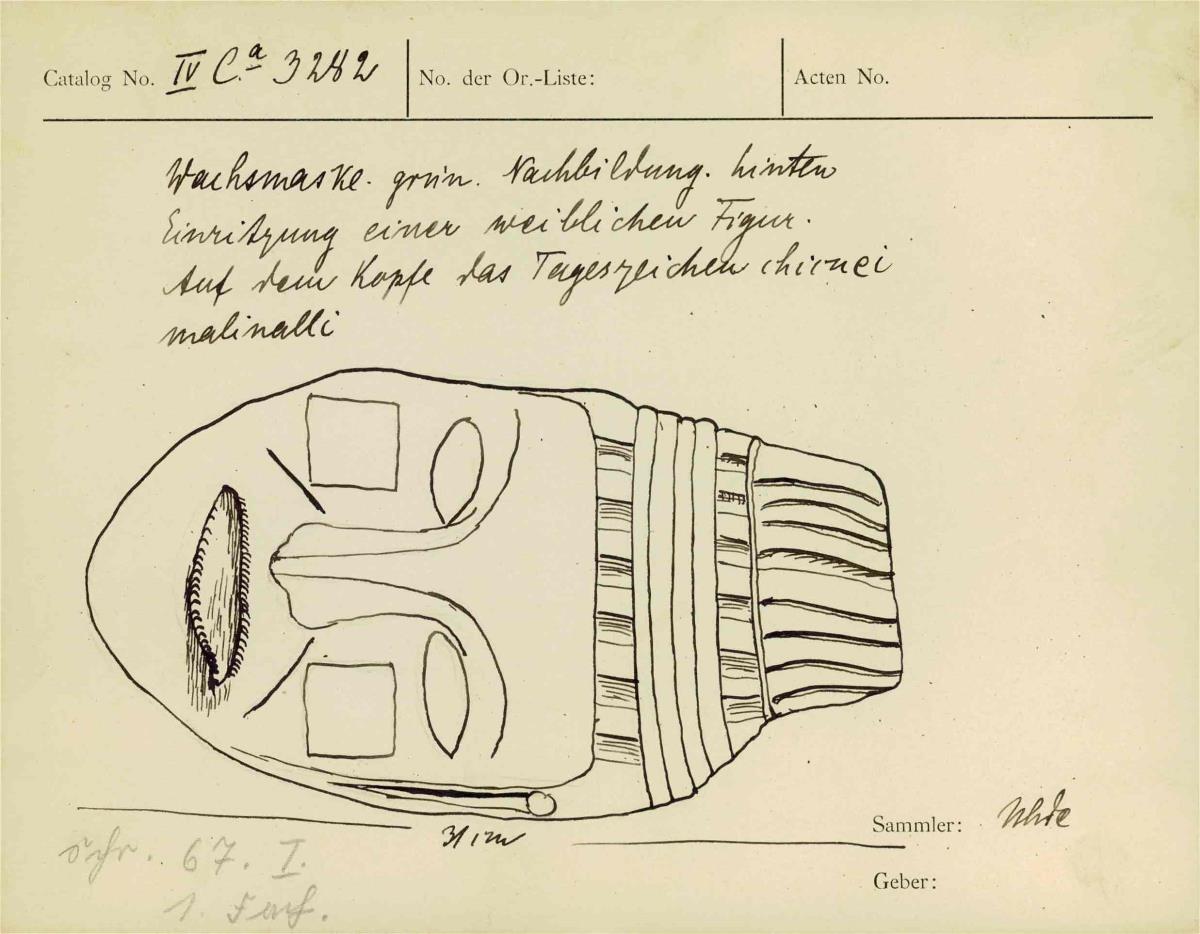 Catalog No. IV C.a 3282
No. der Or.-Liste:
Acten No.
Wachsmaske. grün. Nachbildung. hinten
Einritzung einer weiblichen Figur.
Auf dem Kopfe das Tageszeichen chicuei
malinalli
31 cm
Sammler: Uhde
Geber:
67. I.
1. Fach.